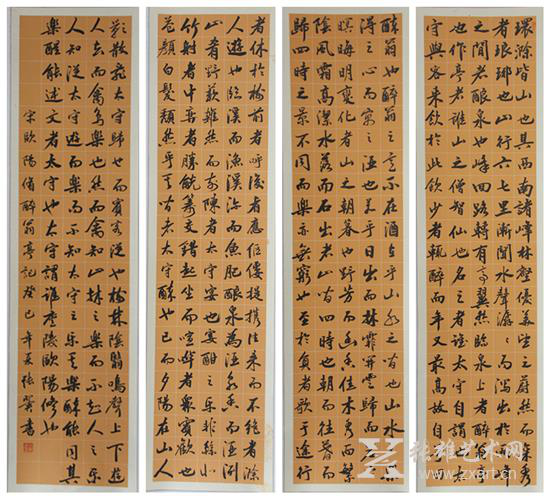 環滁皆山也其西南諸峰林壑優美望之蔚然而深秀
者琅琊也山行六七里漸聞水聲潺潺而瀉出於兩峰
之間者釀泉也峰回路轉有亭翼然臨泉上者醉翁亭
也作亭者誰山之僧智仙也名之者誰太守自謂也太
守與客來飲於此飲少者輒醉而年又最高故自號曰
醉翁也醉翁之意不在酒在乎山水之間也山水之樂
得之心而寓之酒也若夫日出而林霏開雲歸而岩穴
暝晦明變化者山之朝暮也野芳發而幽香佳木秀而繁
陰風霜高潔水落而石出者山間之四時也朝而往暮而
歸四時之景不同而樂亦無窮也至於負者歌于途行
者休於樹前者呼後者應傴僂提攜往來而不絕者滁
人遊也臨溪而漁溪深而魚肥釀泉為酒泉香而酒洌
山肴野蔌雜然而前陳者太守宴也宴酣之樂非絲非
竹射者中弈者勝觥籌交錯起坐而喧嘩者衆賓歡也
蒼顏白髮頹然乎其間者太守醉也已而夕陽在山人
影散亂太守歸也而賓客從也樹林陰翳鳴聲上下遊
人去而禽鳥樂也然而禽鳥知山林之樂而不知人之樂
人知從太守遊而樂而不知太守之樂其樂也醉能同其
樂醒能述文者太守也太守謂誰廬陵歐陽修也
宋歐陽脩醉翁亭記癸巳年夏張書
张雄艺术网
www.zxart.cn